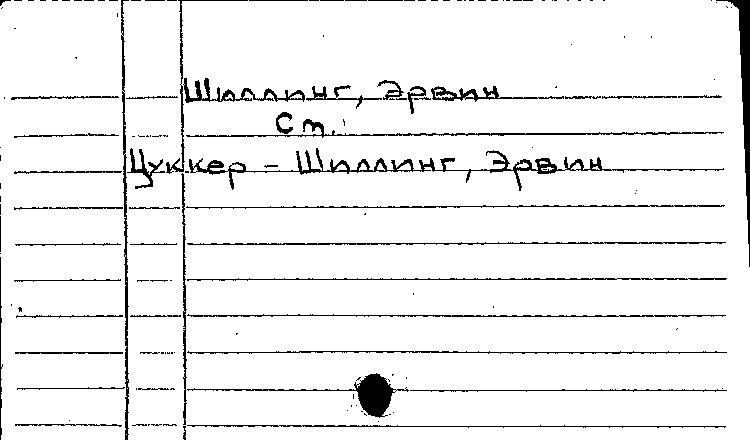 Шиллинг, Эрвин
См.:
Цуккер – Шиллинг, Эрвин